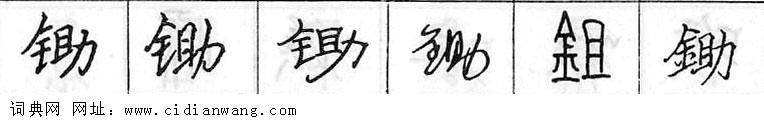 锄 锄 锄 锄 鉏 鋤
词典网 网址：www.cidianwang.com